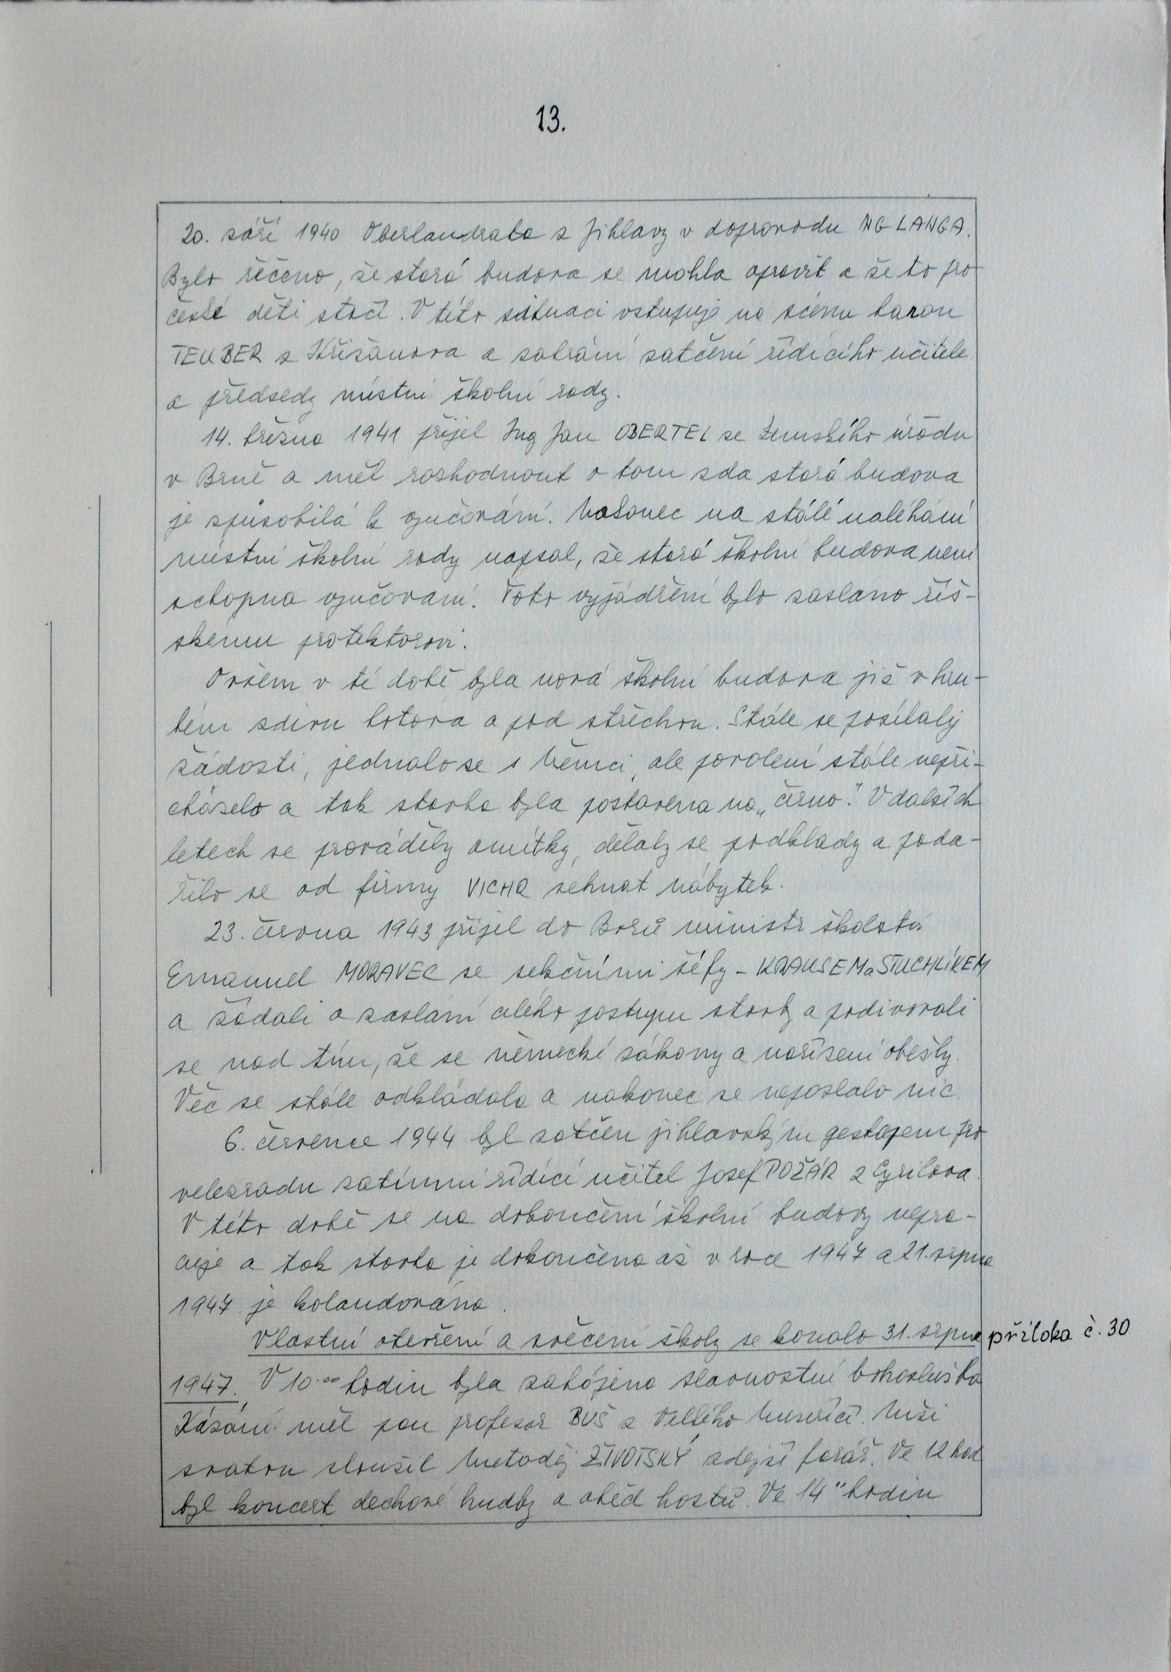 13.
20. září 1940 Oberlandrata z Jihlavy v doprovodu ING LANGA.
Bylo řečeno, že stará budova se mohla opravit a že to pro
české děti stačí. V této situaci vstupuje na scénu baron
TEUBER z Křižanova a zabrání zatčení řídícího učitele
a předsedy místní školní rady.
14. března 1941 přijel Ing Jan OBERTEL ze Zemského úřadu
v Brně a měl rozhodnout o tom zda stará budova
je způsobilá k vyučování. Nakonec na stálé naléhání
místní školní rady napsal, že stará školní budova není
schopna vyučovaní. Toto vyjádření bylo zasláno říš-
skému protektorovi.
Ovšem v té době byla nová školní budova již v hru-
bém zdivu hotova a pod střechou. Stále se posílaly
žádosti, jednalo se s Němci, ale povolení stále nepři-
cházelo a tak stavba byla postavena na „černo." V dalších
letech se prováděly omítky, dělaly se podklady a poda-
řilo se od firmy VICHR sehnat nábytek.
23. června 1943 přijel do Borů ministr školství
Emanuel MORAVEC se sekčními šéfy - KRAUSEM a STUCHLÍKEM
a žádali o zaslání celého postupu stavby a podivovali
se nad tím, že se německé zákony a nařízení obešly.
Věc se stále odkládala a nakonec se neposlalo nic.
6. července 1944 byl zatčen jihlavským gestapem pro
velezradu zatímní řídící učitel Josef POŽÁR z Cyrilova.
V této době se na dokončení školní budovy nepra-
cuje a tak stavba je dokončena až v roce 1947 a 21. srpna
1947 je kolaudována.
Vlastní otevření a svěcení školy se konalo 31. srpna příloha č. 30
1947. V 10.00 hodin byla zahájena slavnostní bohoslužba
Kázání měl pan profesor BUŠ z Velkého Meziříčí. Mši
svatou sloužil Metoděj ŽIVOTSKÝ zdejší farář. Ve 12 hod
byl koncert dechové hudby a oběd hostů. Ve 14 hodin